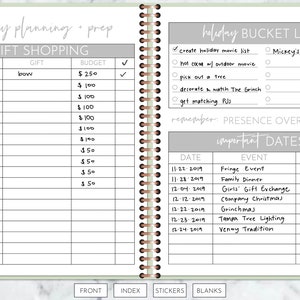 y planning + prep
GIFT SHOPPING
GIFT BUDGET ✓
bow $250 ✓
$100
$100
$100
$100
$100
$100
$50
$50
$50
$50
holiday BUCKET L
✓ create holiday movie list
Mickey's
hot cocoa w/ outdoor movie
pick out a tree
decorate & match The Grinch
get matching PJs
remember PRESENCE OVER
important DATES
DATE EVENT
11.22.2019 Fringe Event
11.28.2019 Family Dinner
12.04.2019 Girls' Gift Exchange
12.12.2019 Company Christmas
12.22.2019 Grinchmas
12.23.2019 Tampa Tree Lighting
12.24.2019 Venny Tradition
FRONT INDEX STICKERS BLANKS